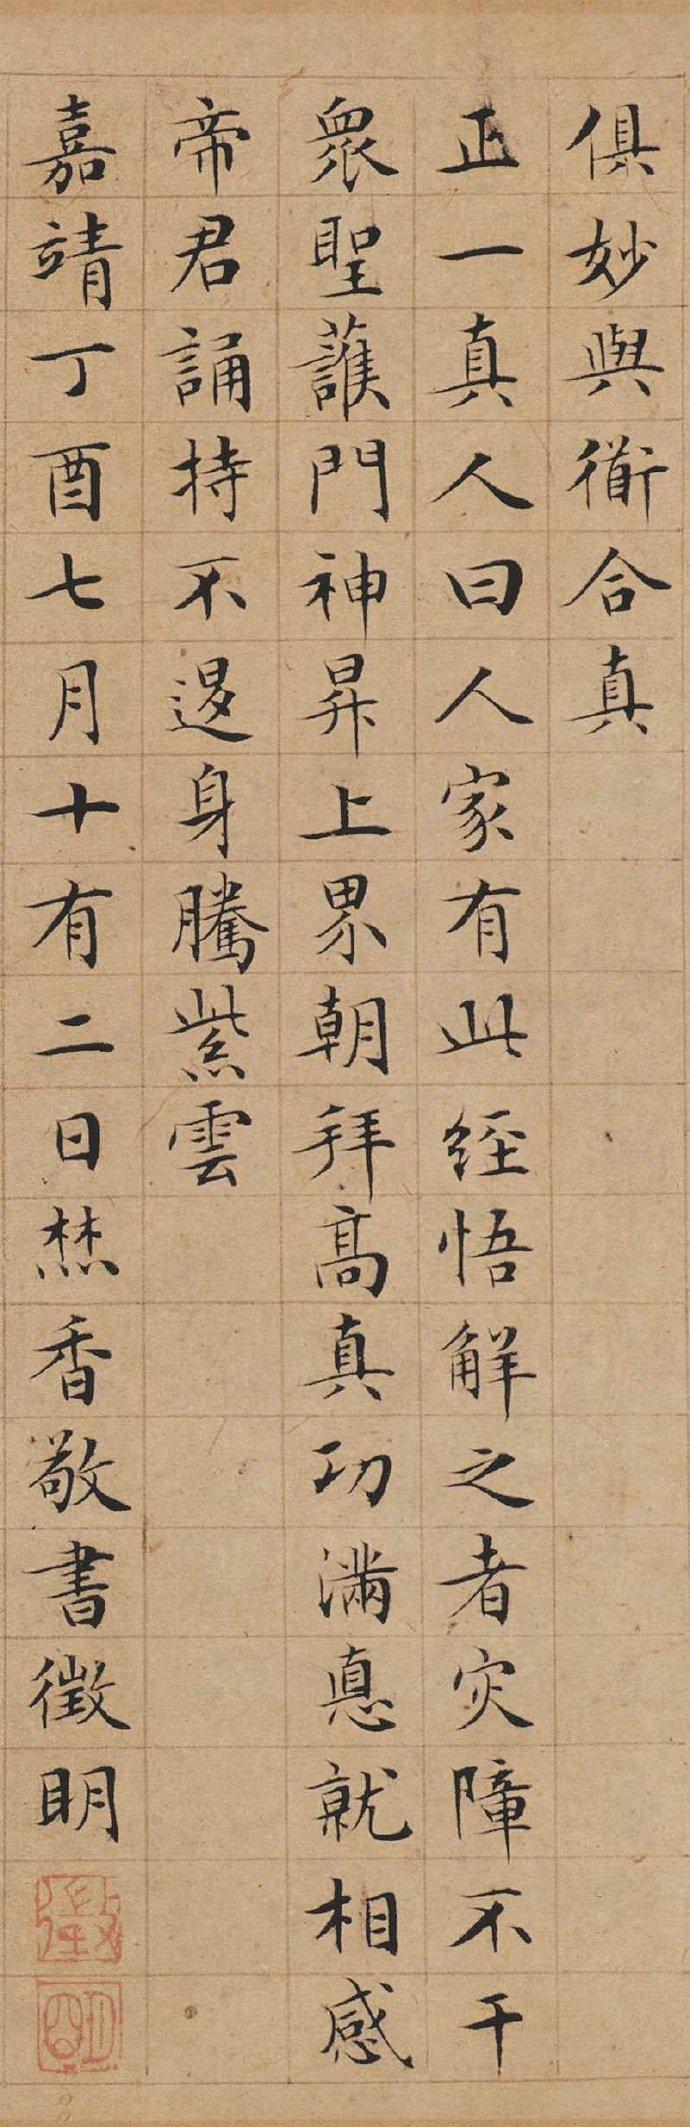 俱妙與衜合真
正一真人曰人家有此經悟解之者灾障不干
眾聖護門神昇上界朝拜高真功滿悳就相感
帝君誦持不退身騰紫雲
嘉靖丁酉七月十有二日焚香敬書徵明
徵明